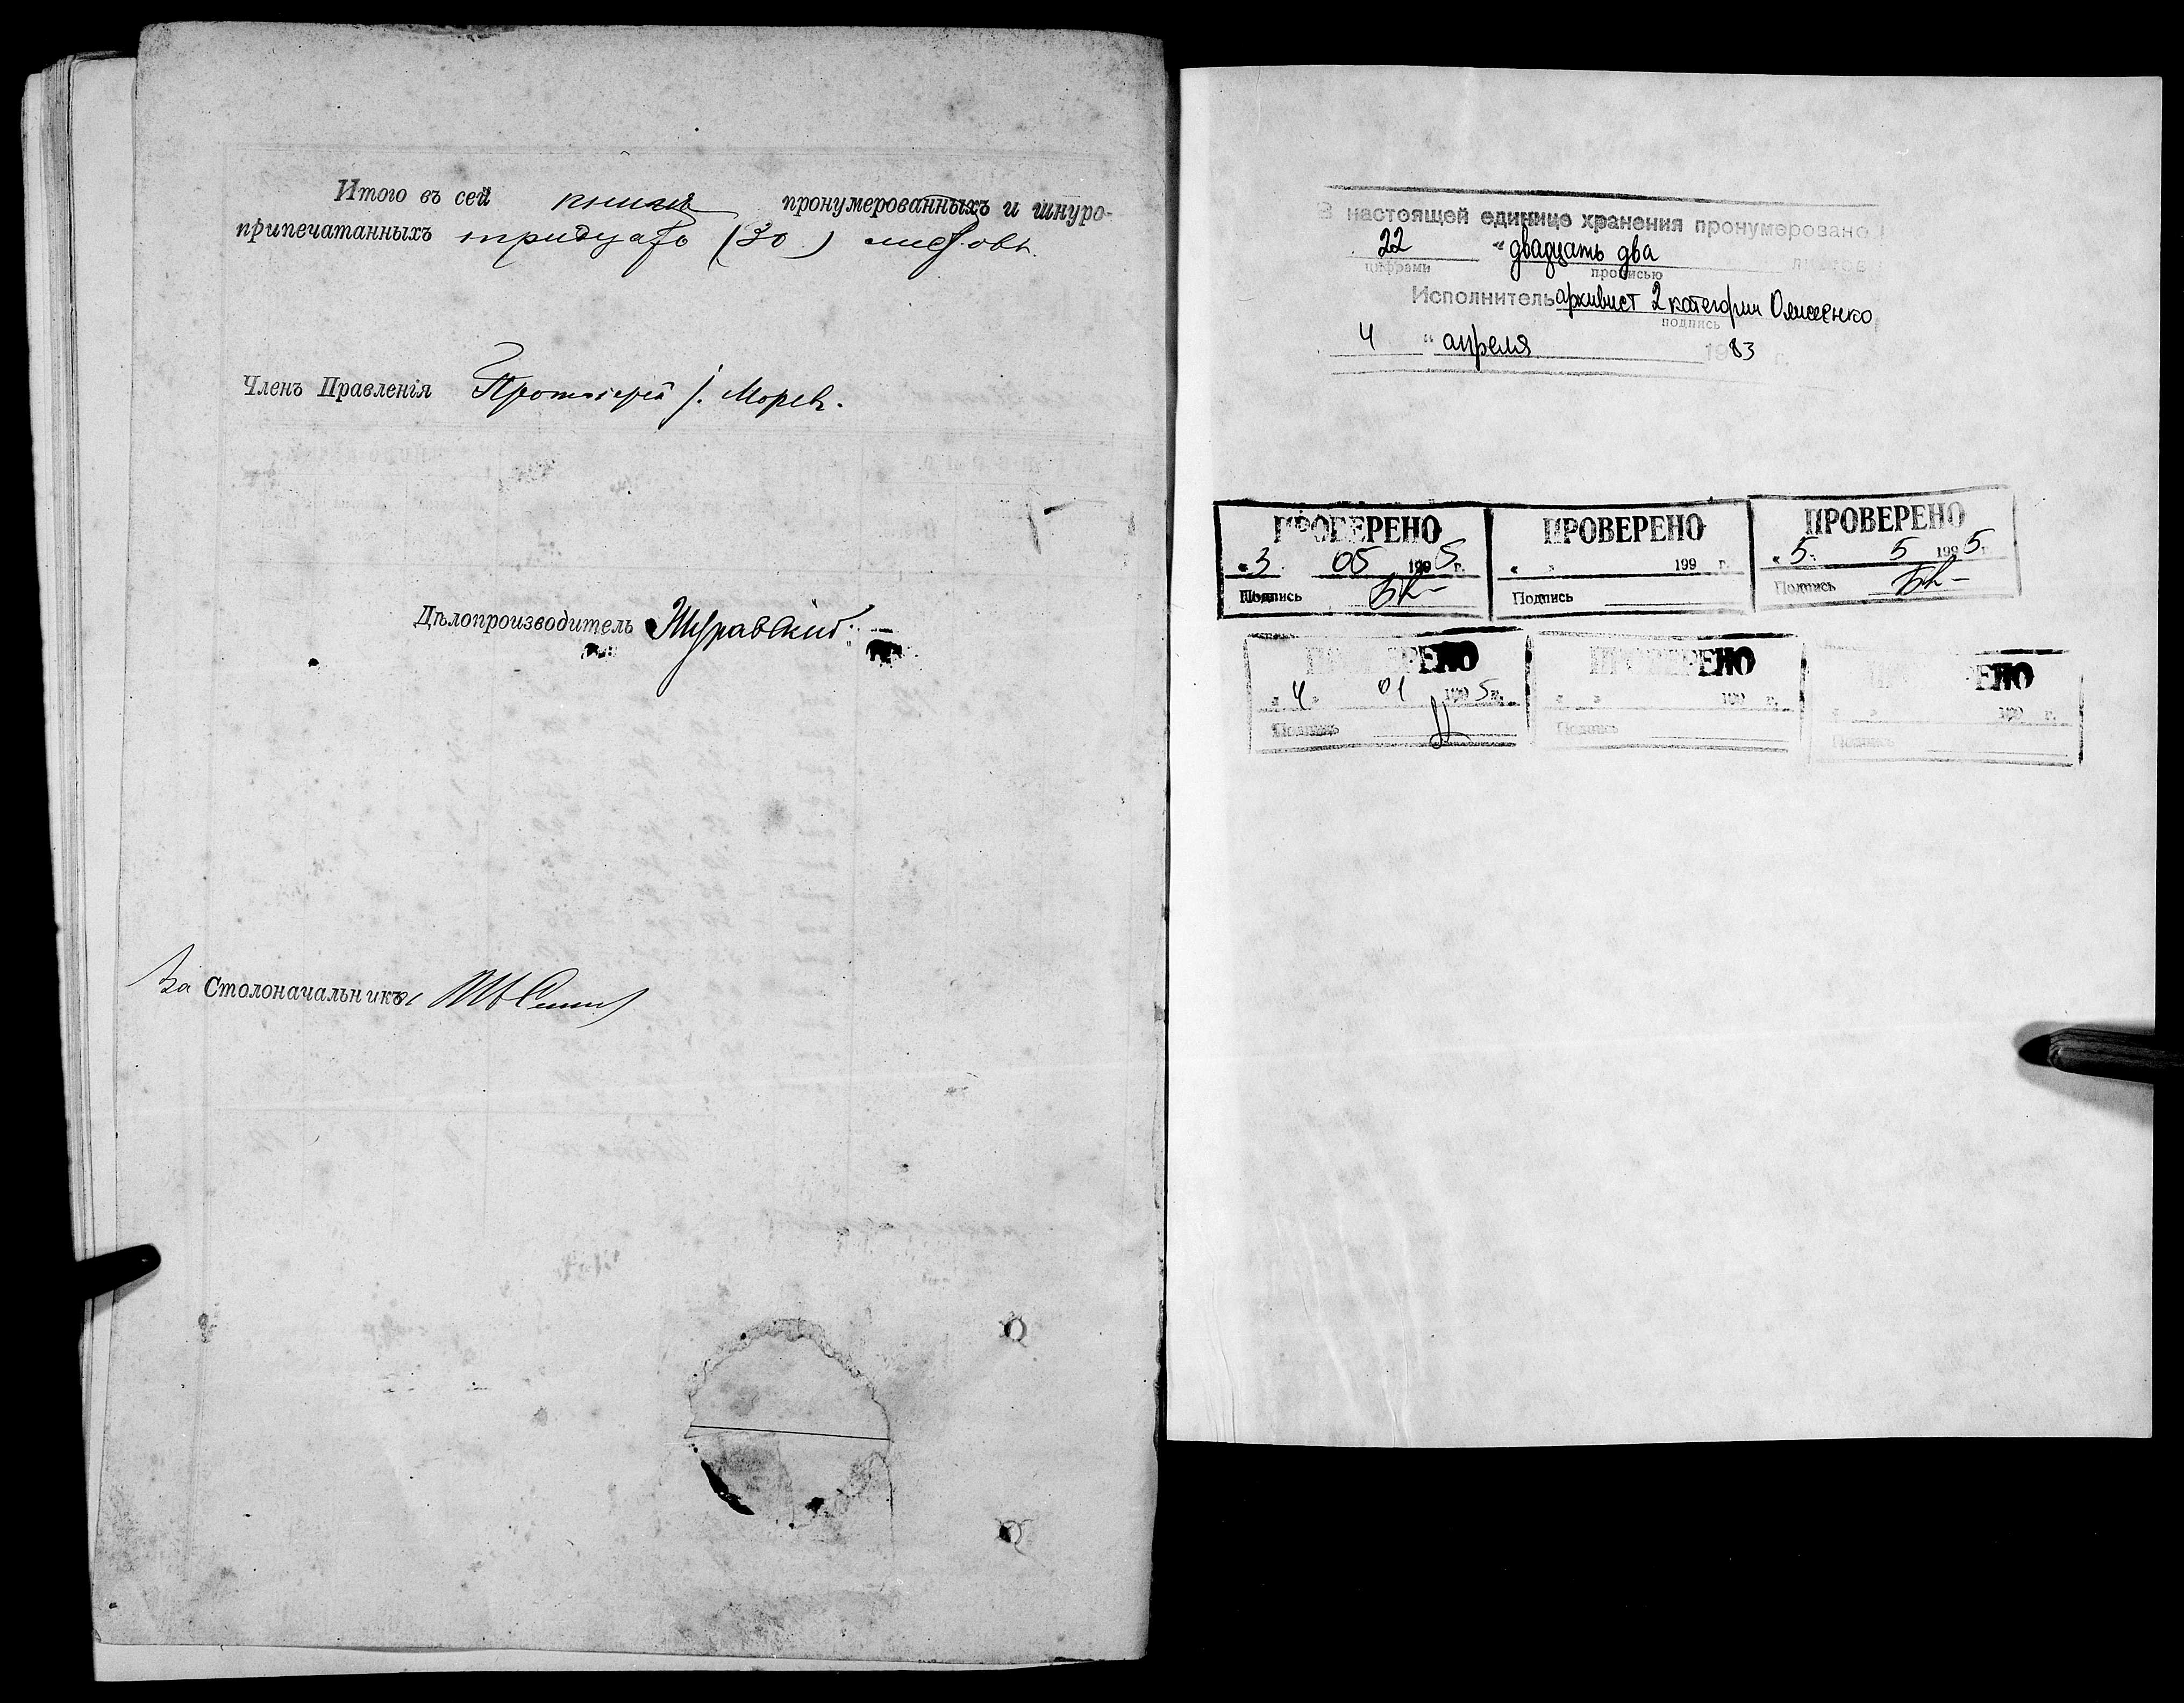 Итого въ сей книгѣ пронумерованныхъ и шнуро-
припечатанныхъ тридцать (30) листовъ.
Членъ Правленія Протоіерей І. Моревъ.
Дѣлопроизводитель Журавскій.
За Столоначальника
В настоящей единице хранения пронумеровано
22 " двадцать два листов
цифрами прописью
Исполнитель архивист 2 категории
подпись
4 " апреля 1983 г.
ПРОВЕРЕНО
«3 05 1995 г.
Подпись
ПРОВЕРЕНО
« » 199 г.
Подпись
ПРОВЕРЕНО
«5» 5 1995 г.
Подпись
ПРОВЕРЕНО
«4» 01 1995 г.
Подпись
ПРОВЕРЕНО
« » 199 г.
Подпись
ПРОВЕРЕНО
« » 199 г.
Подпись